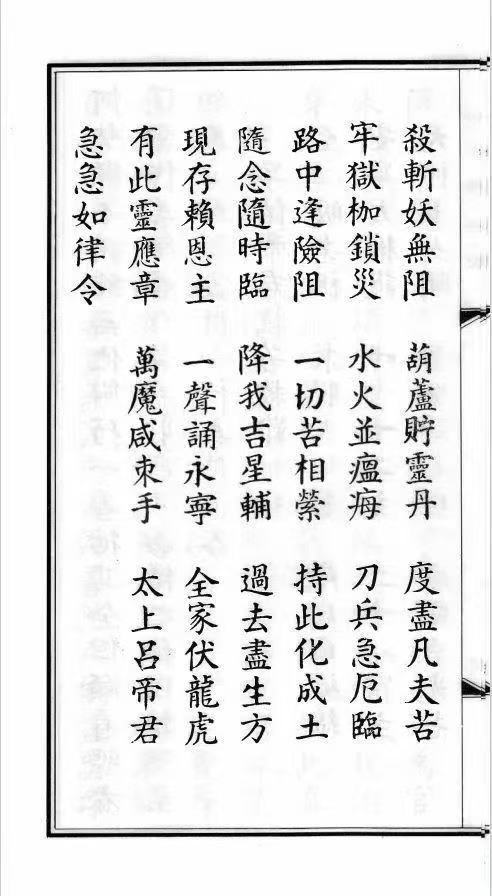 殺斬妖無阻 葫蘆貯靈丹 度盡凡夫苦
牢獄枷鎖災 水火並瘟㾂 刀兵急厄臨
路中逢險阻 一切苦相縈 持此化成土
隨念隨時臨 降我吉星輔 過去盡生方
現存賴恩主 一聲誦永寧 全家伏龍虎
有此靈應章 萬魔咸束手 太上呂帝君
急急如律令